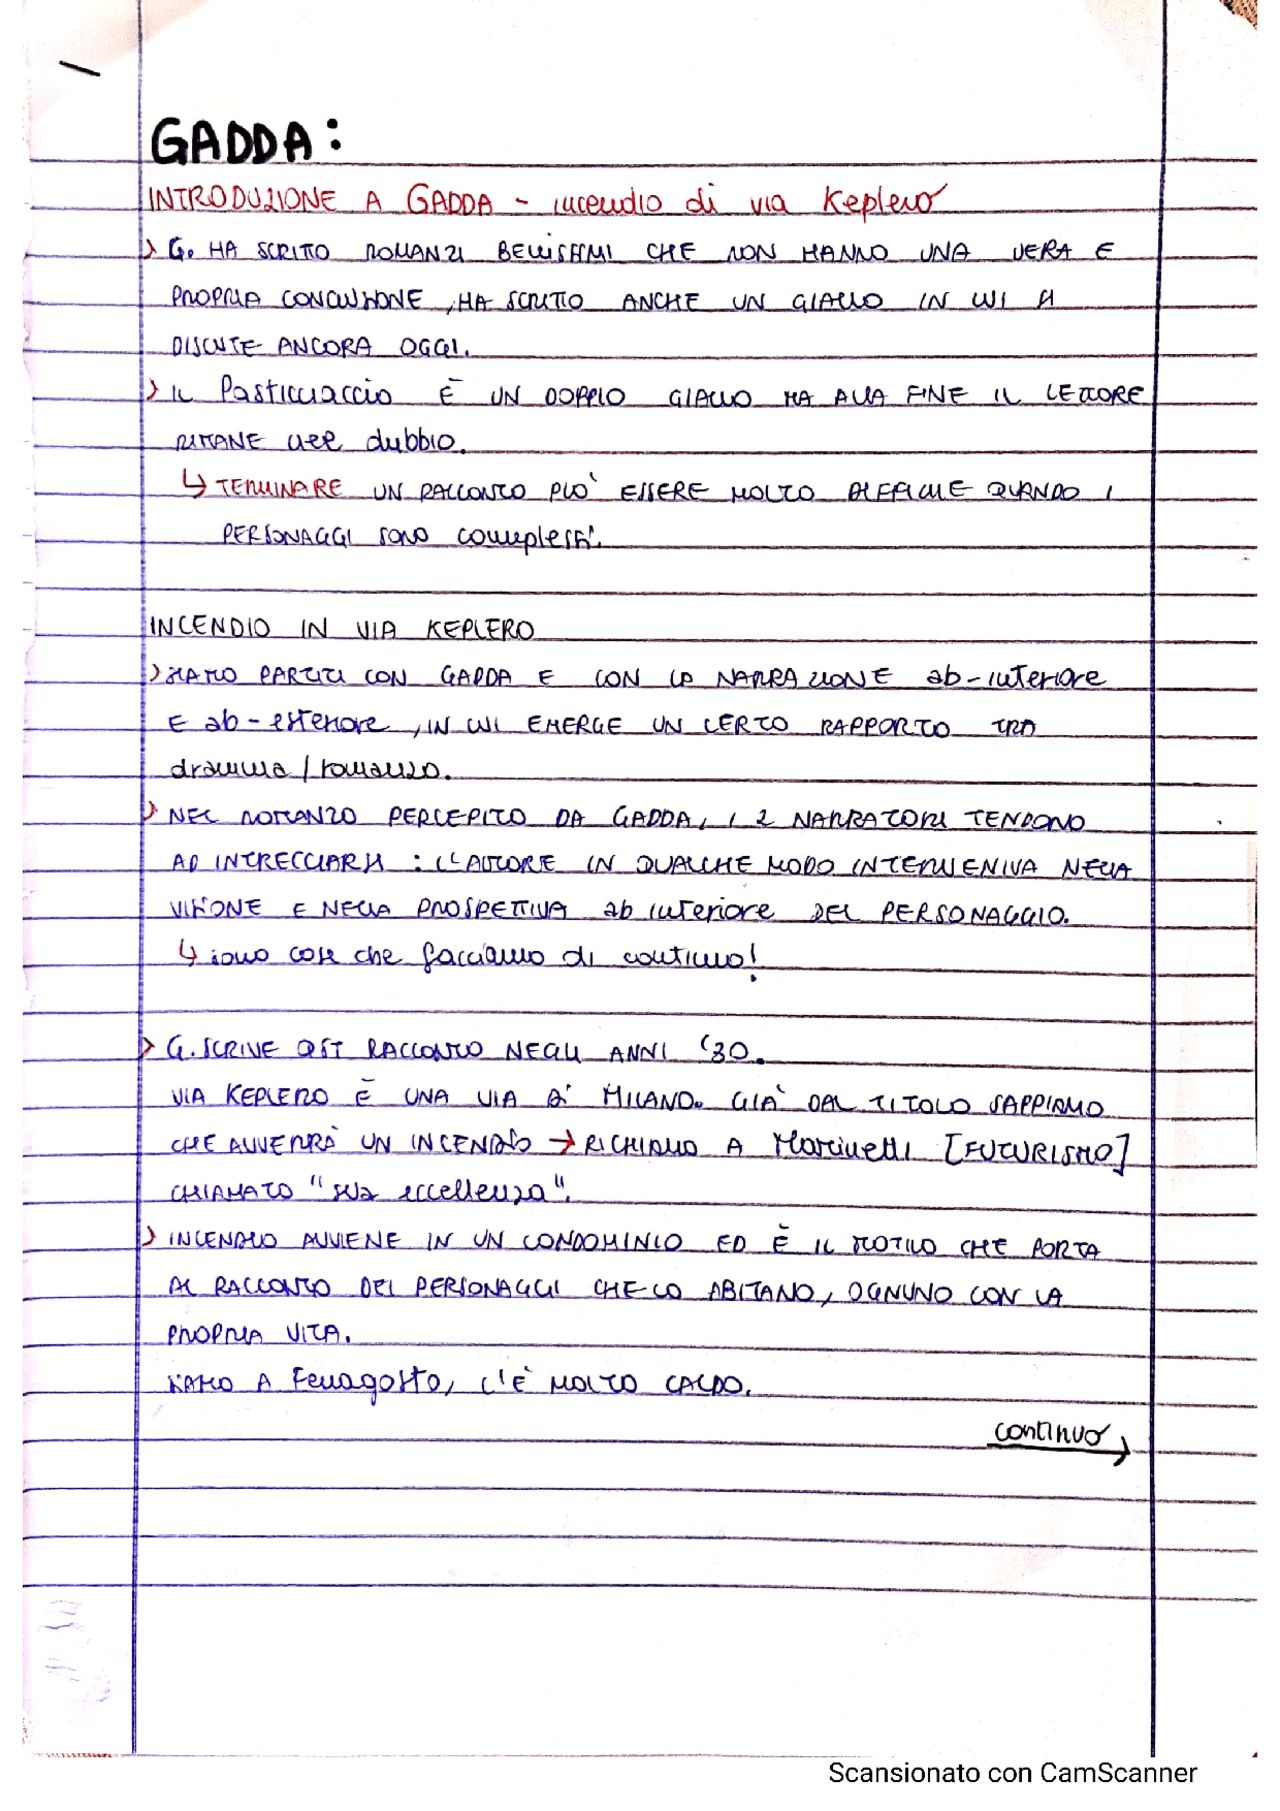 GADDA:
INTRODUZIONE A GADDA - incendio di via Keplero
> G. HA SCRITTO ROMANZI BELLISSIMI CHE NON HANNO UNA VERA E
PROPRIA CONCLUSIONE, HA SCRITTO ANCHE UN GIALLO IN CUI SI
DISCUTE ANCORA OGGI.
> IL Pasticciaccio È UN DOPPIO GIALLO MA ALLA FINE IL LETTORE
RIMANE nel dubbio.
↳ TERMINARE UN RACCONTO PUO' ESSERE MOLTO DIFFICILE QUANDO I
PERSONAGGI SONO complessi.
INCENDIO IN VIA KEPLERO
> SIAMO PARTITI CON GADDA E CON LA NARRAZIONE ab-interiore
E ab-esteriore, IN CUI EMERGE UN CERTO RAPPORTO TRA
dramma / romanzo.
> NEL ROMANZO PERCEPITO DA GADDA, I 2 NARRATORI TENDONO
AD INTRECCIARSI : L'AUTORE IN QUALCHE MODO INTERVENIVA NELLA
VISIONE E NELLA PROSPETTIVA ab interiore DEL PERSONAGGIO.
↳ sono cose che facciamo di continuo!
> G. SCRIVE QST RACCONTO NEGLI ANNI '30.
VIA KEPLERO È UNA VIA DI MILANO. GIÀ DAL TITOLO SAPPIAMO
CHE AVVERRÀ UN INCENDIO → RICHIAMO A Marinetti [FUTURISMO]
CHIAMATO "sua eccellenza".
> INCENDIO AVVIENE IN UN CONDOMINIO ED È IL MOTIVO CHE PORTA
AL RACCONTO DEI PERSONAGGI CHE LO ABITANO, OGNUNO CON LA
PROPRIA VITA.
SIAMO A Ferragosto, C'È MOLTO CALDO.
continuo →
Scansionato con CamScanner